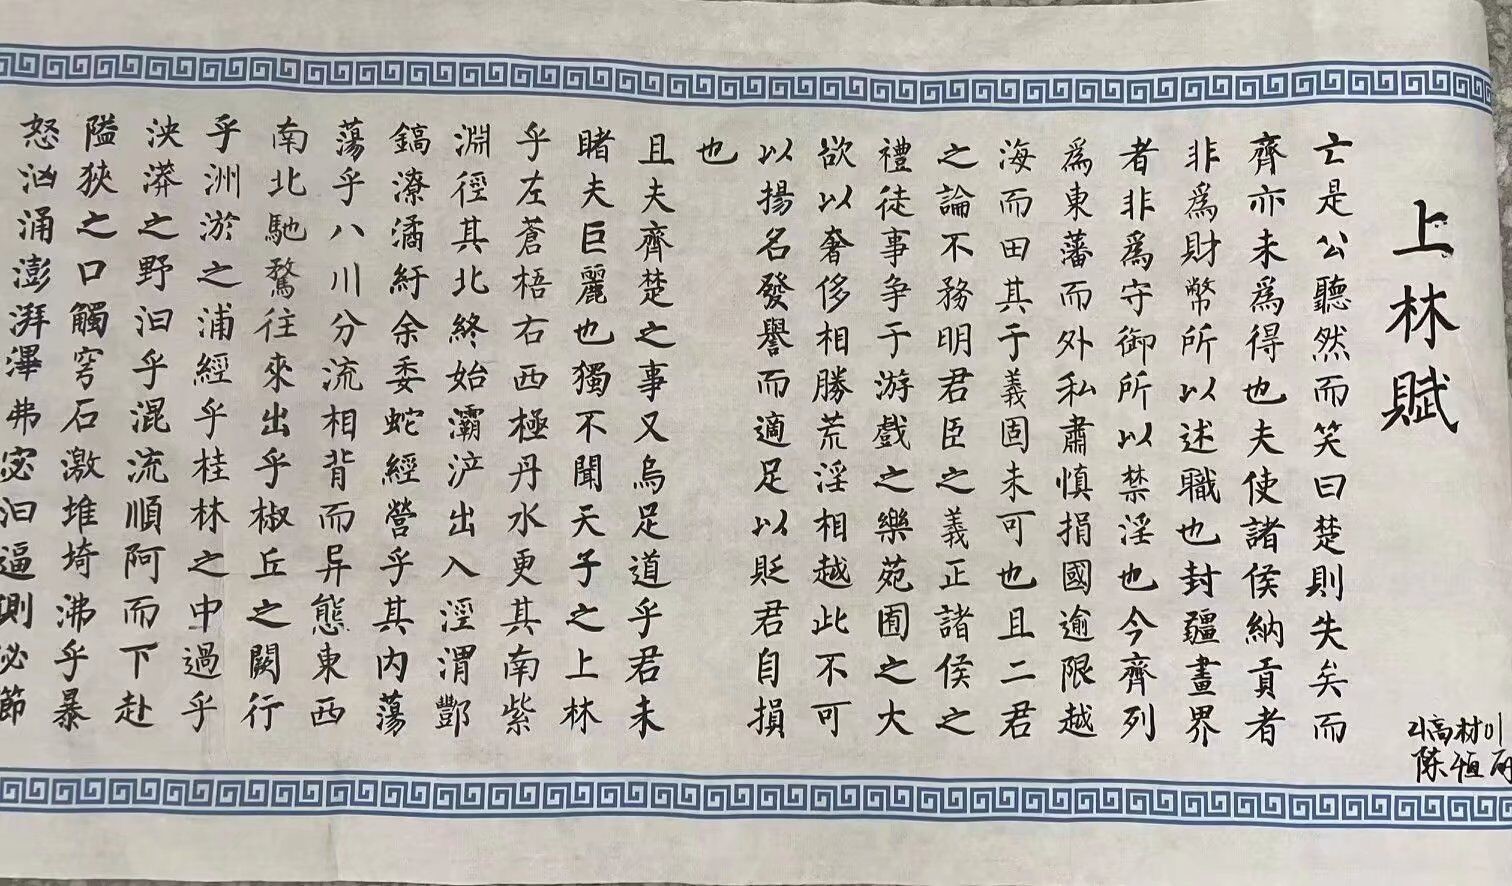 上林賦
21高材01
陈恒
亡是公聽然而笑曰楚則失矣而
齊亦未爲得也夫使諸侯納貢者
非爲財幣所以述職也封疆畫界
者非爲守御所以禁淫也今齊列
爲東藩而外私肅慎捐國逾限越
海而田其于義固未可也且二君
之論不務明君臣之義正諸侯之
禮徒事争于游戲之樂苑囿之大
欲以奢侈相勝荒淫相越此不可
以揚名發譽而適足以貶君自損
也
且夫齊楚之事又烏足道乎君未
睹夫巨麗也獨不聞天子之上林
乎左蒼梧右西極丹水更其南紫
淵徑其北終始灞浐出入涇渭酆
鎬潦潏紆余委蛇經營乎其内蕩
蕩乎八川分流相背而异態東西
南北馳騖往來出乎椒丘之闕行
乎洲淤之浦經乎桂林之中過乎
泱漭之野汩乎混流順阿而下赴
隘狹之口觸穹石激堆埼沸乎暴
怒汹涌澎湃滭弗宓汩逼側泌節